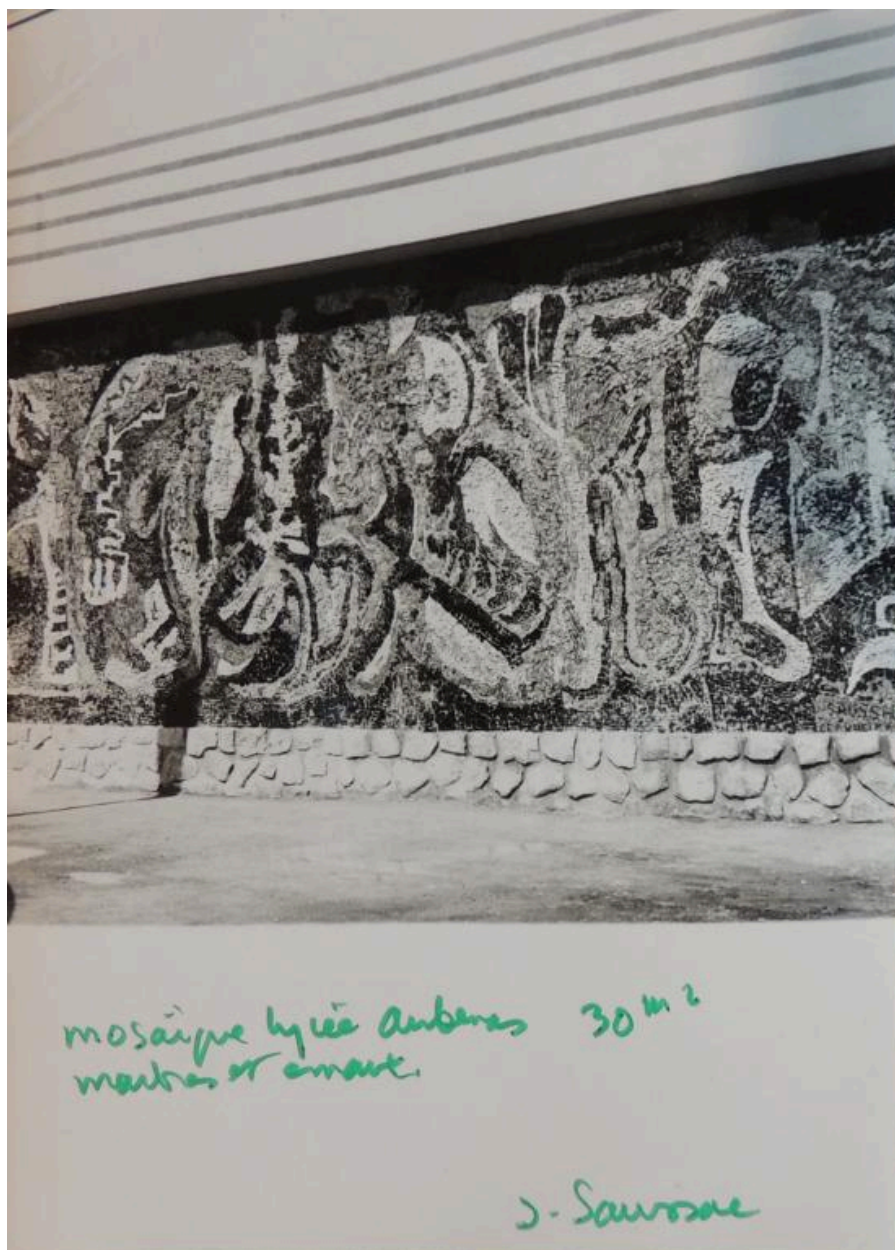 mosaïque lycée aubenas 30 m²
marbres et émaux.
J. Saussac